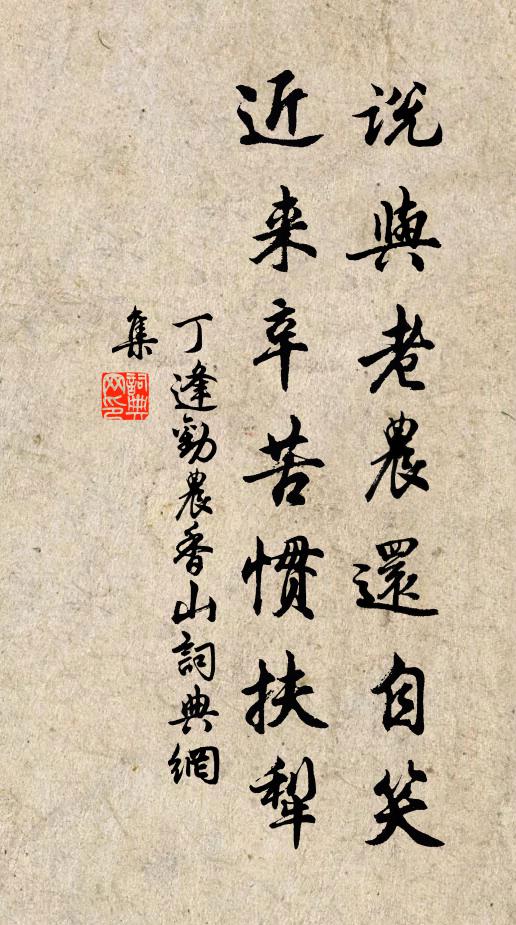 説與老農還自笑
近来辛苦慣扶犁
丁逢勸農香山詞典網
集
詞典
网印